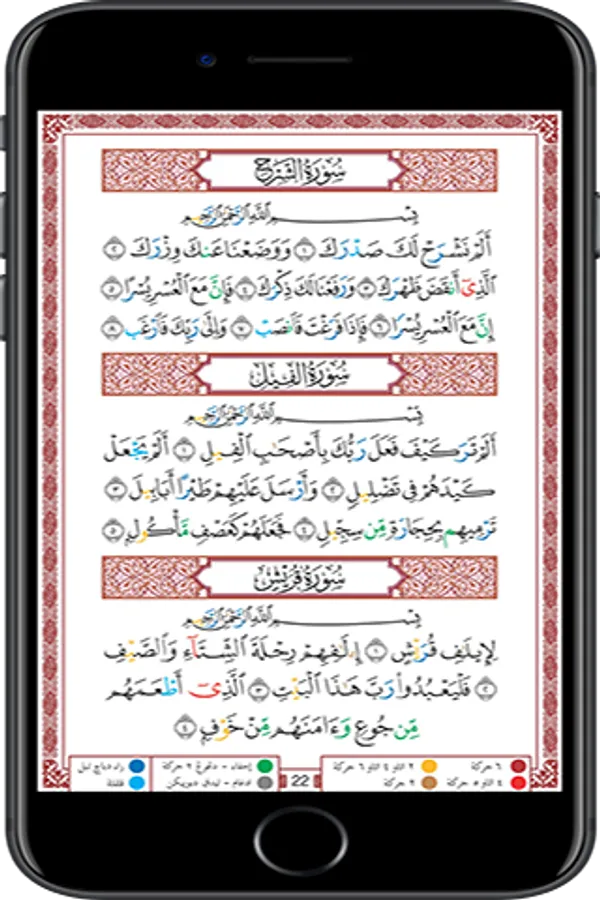 سُورَةُ الشَّرْحِ
بِسْمِ اللَّهِ الرَّحْمَٰنِ الرَّحِيمِ
أَلَمْ نَشْرَحْ لَكَ صَدْرَكَ ١ وَوَضَعْنَا عَنكَ وِزْرَكَ ٢
الَّذِىٓ أَنقَضَ ظَهْرَكَ ٣ وَرَفَعْنَا لَكَ ذِكْرَكَ ٤ فَإِنَّ مَعَ الْعُسْرِ يُسْرًا ٥
إِنَّ مَعَ الْعُسْرِ يُسْرًا ٦ فَإِذَا فَرَغْتَ فَانصَبْ ٧ وَإِلَىٰ رَبِّكَ فَارْغَب ٨
سُورَةُ الْفِيلِ
بِسْمِ اللَّهِ الرَّحْمَٰنِ الرَّحِيمِ
أَلَمْ تَرَ كَيْفَ فَعَلَ رَبُّكَ بِأَصْحَٰبِ الْفِيلِ ١ أَلَمْ يَجْعَلْ
كَيْدَهُمْ فِى تَضْلِيلٍ ٢ وَأَرْسَلَ عَلَيْهِمْ طَيْرًا أَبَابِيلَ ٣
تَرْمِيهِم بِحِجَارَةٍ مِّن سِجِّيلٍ ٤ فَجَعَلَهُمْ كَعَصْفٍ مَّأْكُولٍ ٥
سُورَةُ قُرَيْشٍ
بِسْمِ اللَّهِ الرَّحْمَٰنِ الرَّحِيمِ
لِإِيلَٰفِ قُرَيْشٍ ١ إِۦلَٰفِهِمْ رِحْلَةَ الشِّتَآءِ وَالصَّيْفِ
٢ فَلْيَعْبُدُوا۟ رَبَّ هَٰذَا الْبَيْتِ ٣ الَّذِىٓ أَطْعَمَهُم
مِّن جُوعٍ وَءَامَنَهُم مِّنْ خَوْفٍ ٤
٦ حركة ٢ اتاو ٤ اتاو ٦ حركة إخفاء - دڠوڠ ٢ حركة راء دباچ تبل
٤ اتاو ٥ حركة ٢ حركة 22 ادغام - قلقلة